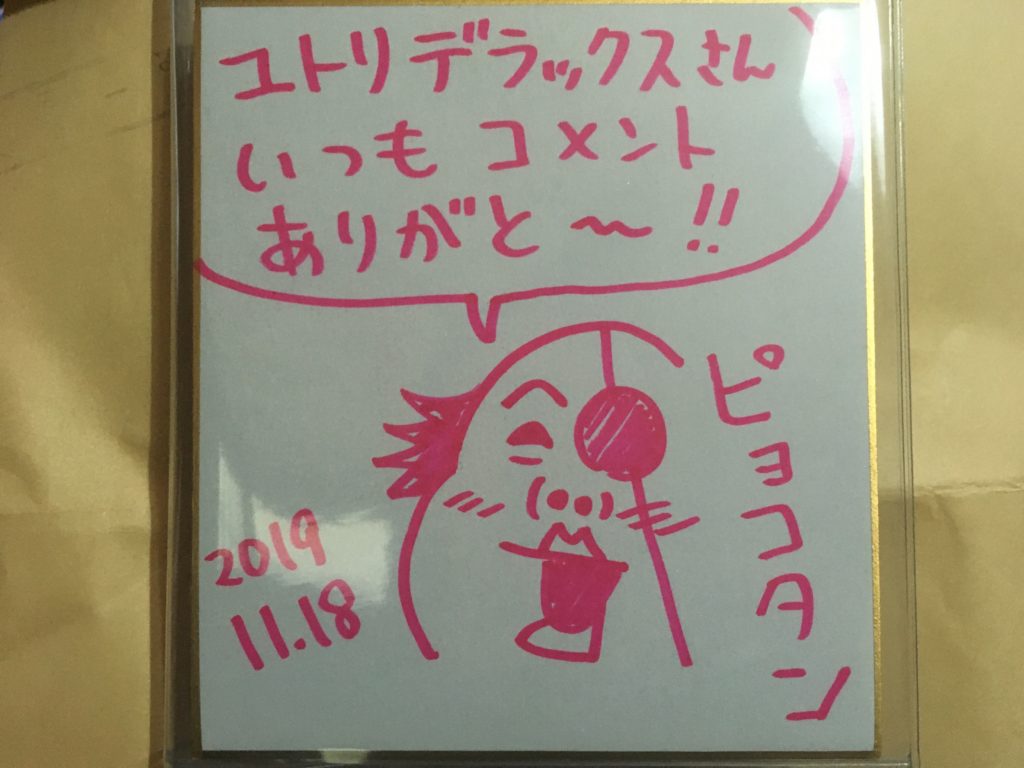 ユトリデラックスさん
いつも コメント
ありがと〜!!
ピョコタン
2019
11.18